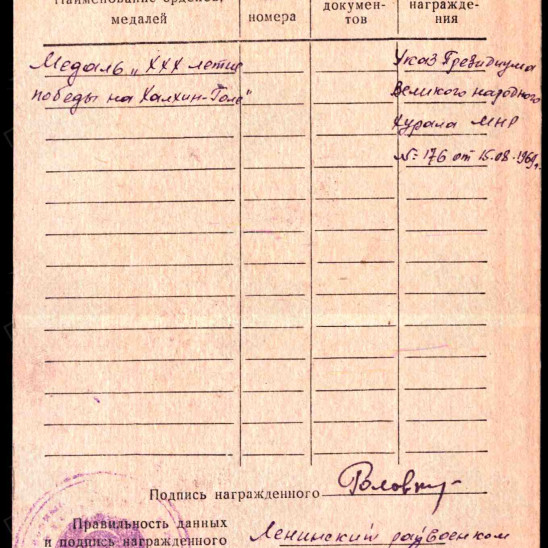 Наименование орденов,
медалей
номера
докумен-
тов
награжде-
ния
Медаль „XXX летие
победы на Халхин-Голе"
Указ Президиума
Великого народного
Хурала МНР
№ 176 от 15.08.1969г.
Подпись награжденного
Правильность данных
и подпись награжденного
Ленинский райвоенком